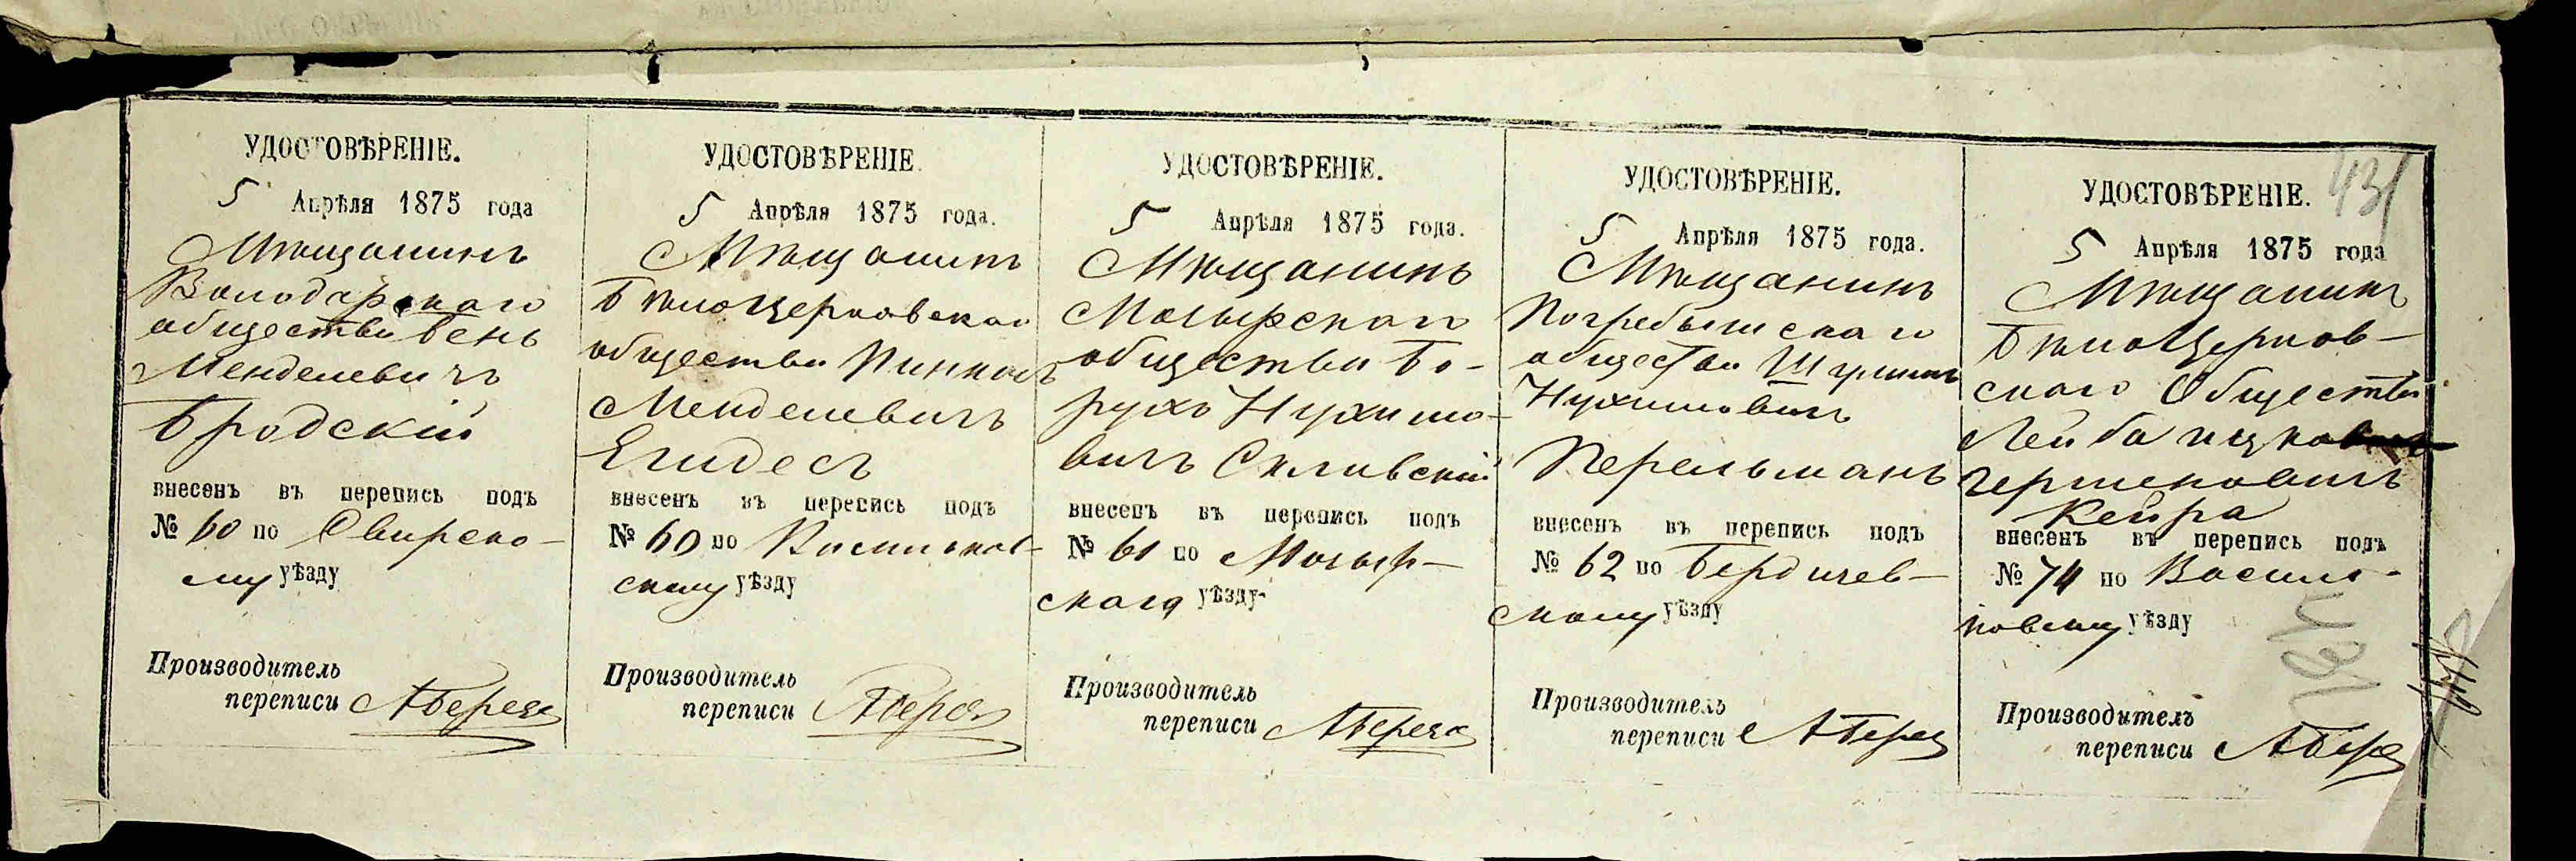 УДОСТОВѢРЕНІЕ.
5 Апрѣля 1875 года
Мѣщанинъ
Володарскаго
общества Бень
Менделевичъ
Бродскій
внесенъ въ перепись подъ
№ 60 по Сквирско-
му уѣзду
Производитель
переписи
УДОСТОВѢРЕНІЕ.
5 Апрѣля 1875 года.
Мѣщанинъ
Бѣлоцерковскаго
общества Пинкасъ
Менделевичъ
Егидесъ
внесенъ въ перепись подъ
№ 60 по Васильков-
скому уѣзду
Производитель
переписи
УДОСТОВѢРЕНІЕ.
5 Апрѣля 1875 года.
Мѣщанинъ
Мозырскаго
общества Бо-
рухъ Нухимо-
вичъ
внесенъ въ перепись подъ
№ 61 по Мозыр-
скаго уѣзду
Производитель
переписи
УДОСТОВѢРЕНІЕ.
5 Апрѣля 1875 года.
Мѣщанинъ
Погребыщскаго
общества
Нухимовичъ
Перельманъ
внесенъ въ перепись подъ
№ 62 по Бердичев-
скому уѣзду
Производитель
переписи
431
УДОСТОВѢРЕНІЕ.
5 Апрѣля 1875 года
Мѣщанинъ
Бѣлоцерков-
скаго Общества
Лейба
Гершковичъ
Кейра
внесенъ въ перепись подъ
№ 74 по Василь-
ковскому уѣзду
Производитель
переписи